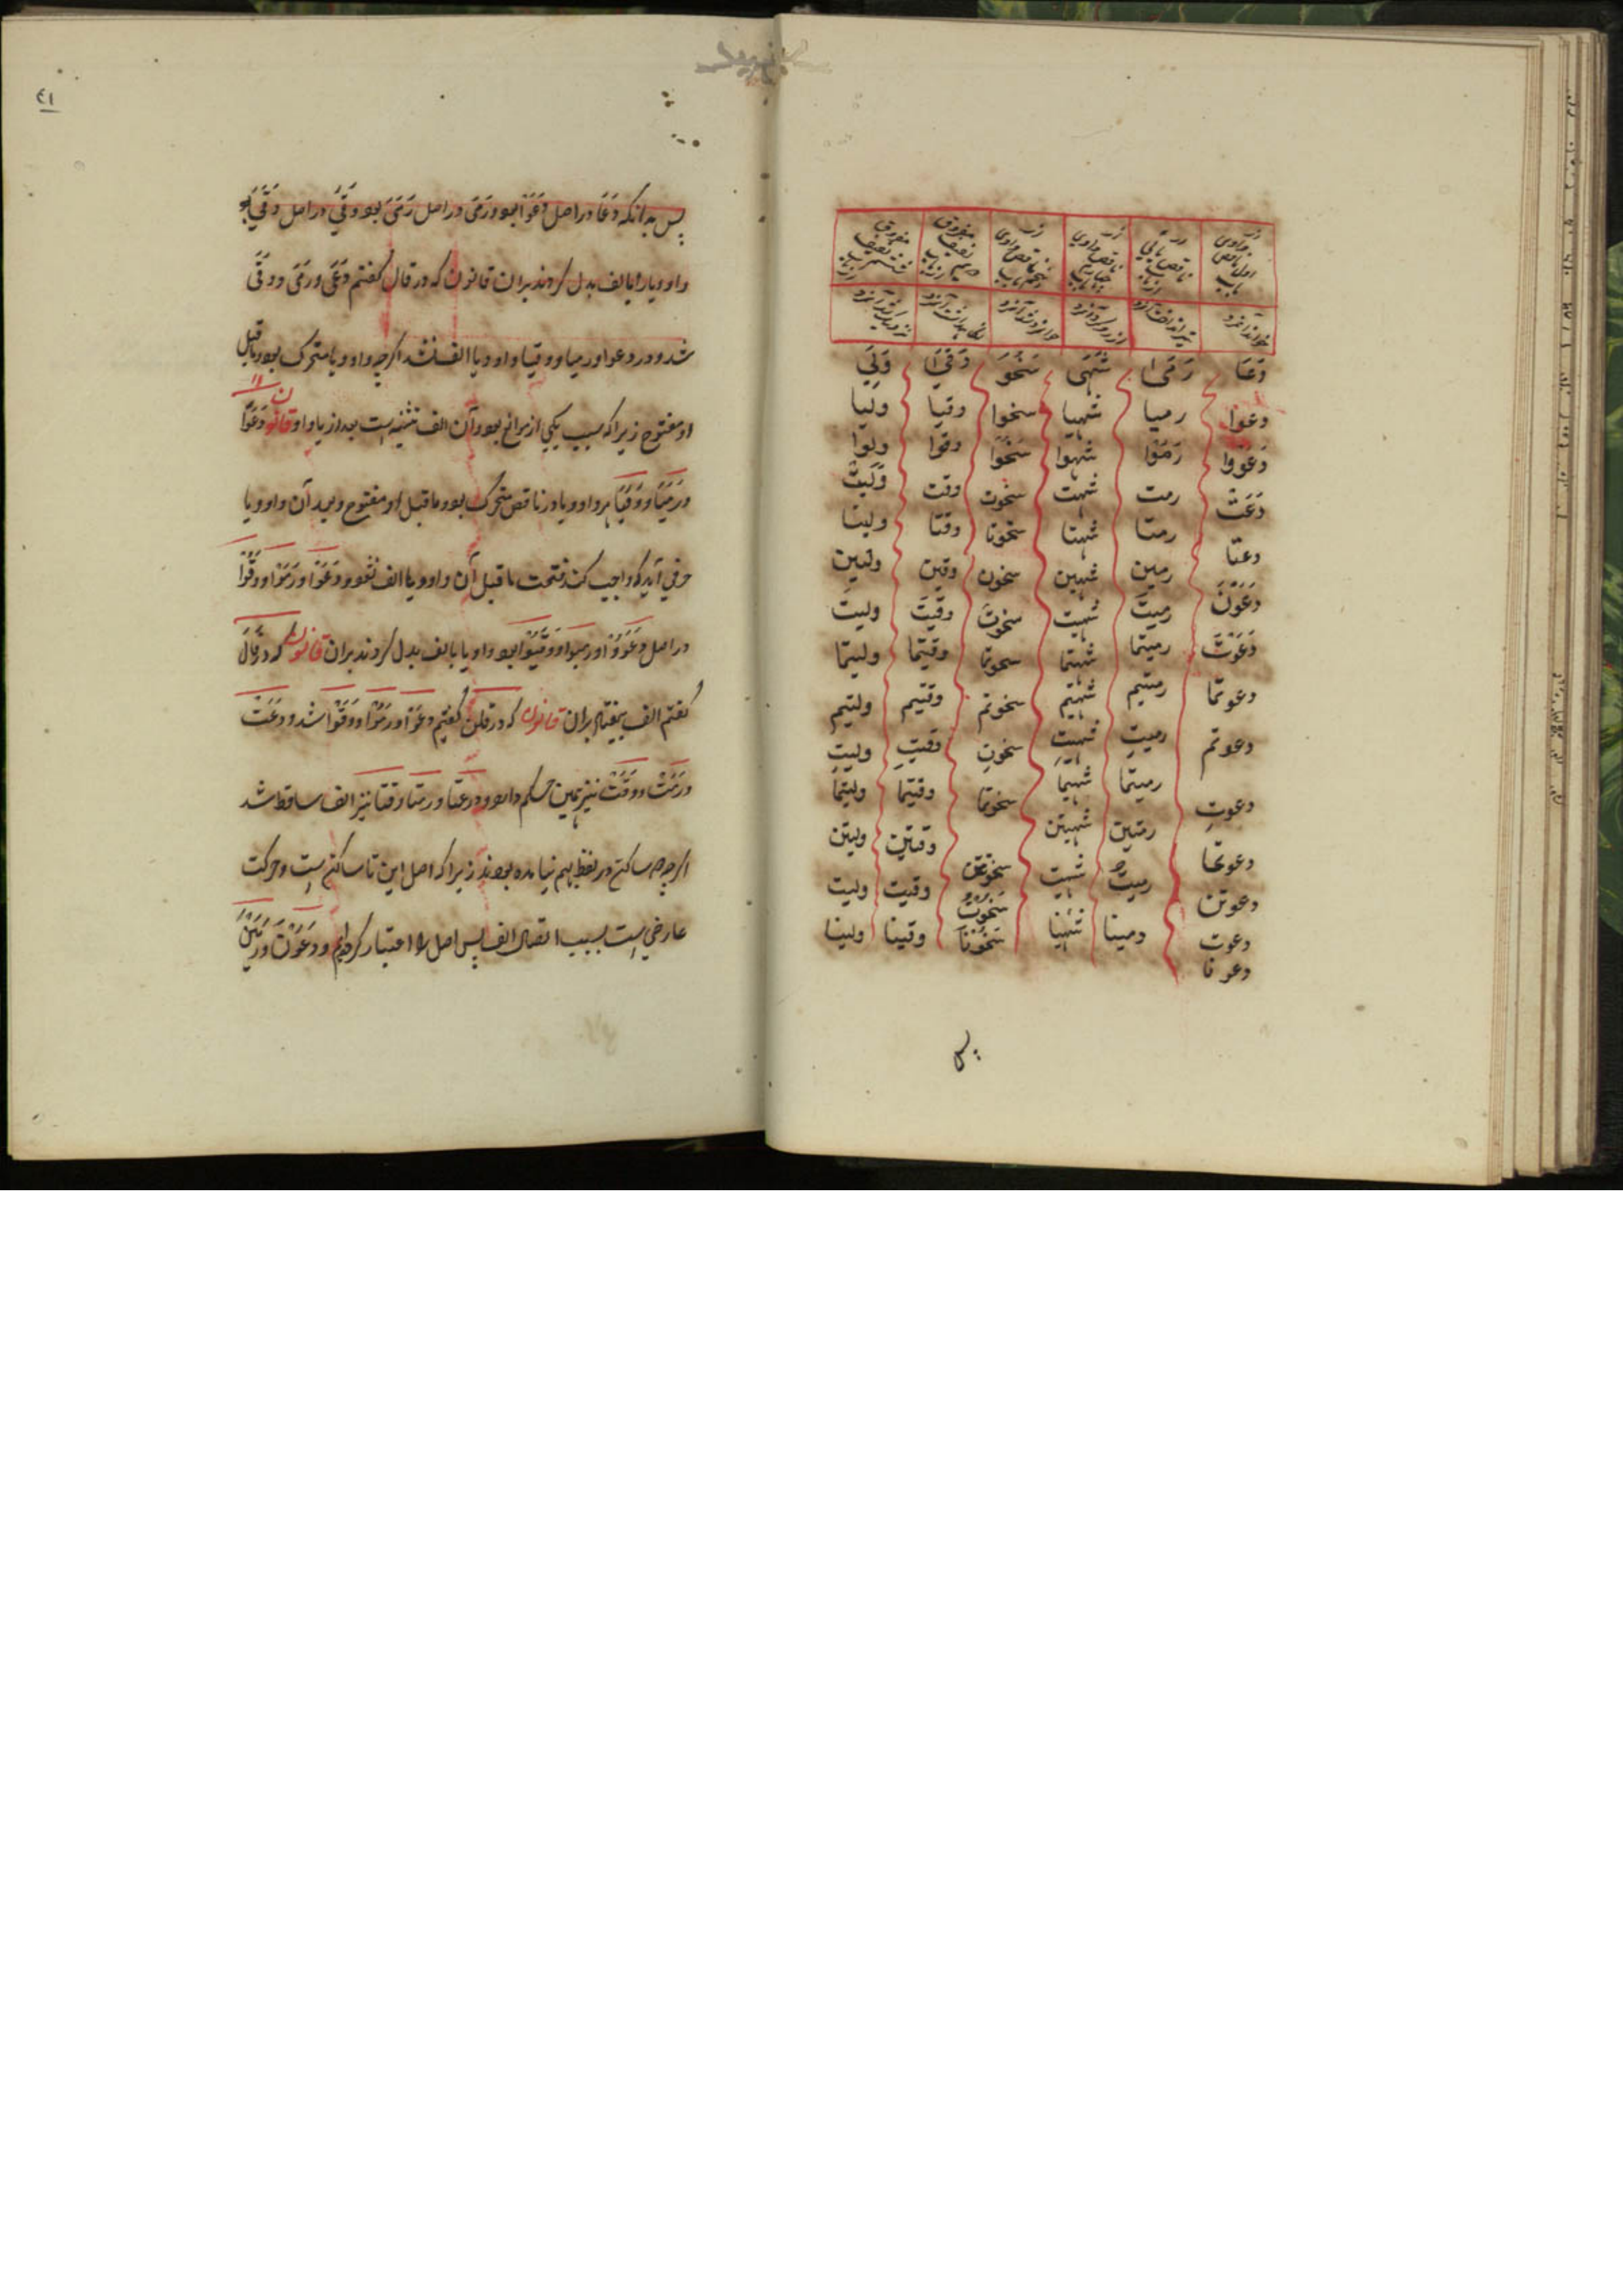 دَعَا رَمَیٰ شَهَی سَخُوَ وَقَیٰ وَلِيَ
دعوا رمیا شهیا سخوا وقیا ولیا
دَعَوْا رَمَوْا شهوا سَخُوْا وقوا ولوا
دَعَتْ رمت شهت سخوت وقت وَلِيَتْ
دعتا رمتا شهتا سخوتا وقتا ولیتا
دَعَوْنَ رمین شهین سخون وقین ولین
دَعَوْتَ رمیتَ شهیت سخوتَ وقیتَ ولیتَ
دعوتما رمیتما شهیتما سخوتما وقیتما ولیتما
دعوتم رمیتم شهیتم سخوتم وقیتم ولیتم
دعوتِ رمیتِ شهیتِ سخوتِ وقیتِ ولیتِ
دعوتما رمیتما شهیتما سخوتما وقیتما ولیتما
دعوتن رمیتن شهیتن سخوتن وقیتن ولیتن
دعوت رمیت شهیت سَخُوْتُ وقیت ولیت
دعونا رمینا شهینا سَخُوْنَا وقینا ولینا
پس
٤١
پس بدانکه دَعَا دراصل دَعَوَ بود ورَمَیٰ دراصل رَمَيَ بود ووَقَیٰ دراصل وَقَيَ بود
واو ویا را بالف بدل کردند بران قانون که در قال گفتم دَعَیٰ ورَمَیٰ ووَقَیٰ
شد ودر دعوا ورمیا ووقیا واو ویا الف نشد اگرچه واو ویا متحرک بود وماقبل
او مفتوح زیرا که سبب یکی از موانع بود وآن الف تثنیه است بعد از یا واو قانون دَعَوَا
ورَمَیَا ووَقَیَا هر واو ویا در ناقص متحرک بود وماقبل او مفتوح وبعد آن واو ویا
حرفی آید که واجب کند فتحت ماقبل آن واو ویا الف نشود ودَعَوْا ورَمَوْا ووَقَوْا
دراصل دَعَوُوْا ورمیوا ووَقَیُوْا بود واو یا بالف بدل کردند بران قانون که در قَالَ
گفتم الف بیفتاد بران قانون که در قلن گفتیم دعَوْا ورَمَوْا ووَقَوْا شد ودَعَتْ
ورَمَتْ ووَقَتْ نیز همین حکم دارد ودر دعتا ورمتا وقتا نیز الف ساقط شد
اگرچه ساکن در لفظ بهم نیامده بودند زیرا که اصل این تا ساکن است وحرکت
عارضی است بسبب اتصال الف پس اصل را اعتبار کردیم ودَعَوْنَ ورَمَیْنَ